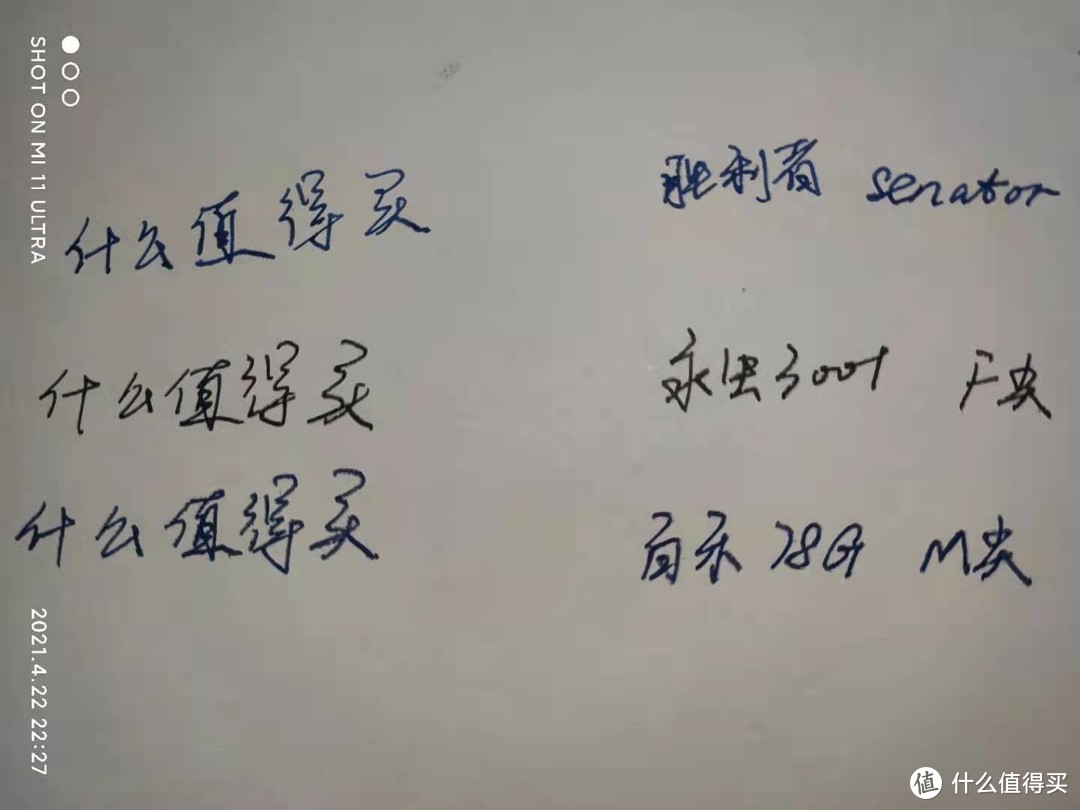 什么值得买 胜利者 senator
什么值得买 永生3001 F尖
什么值得买 百乐78G M尖
SHOT ON MI 11 ULTRA
2021.4.22 22:27
值 什么值得买